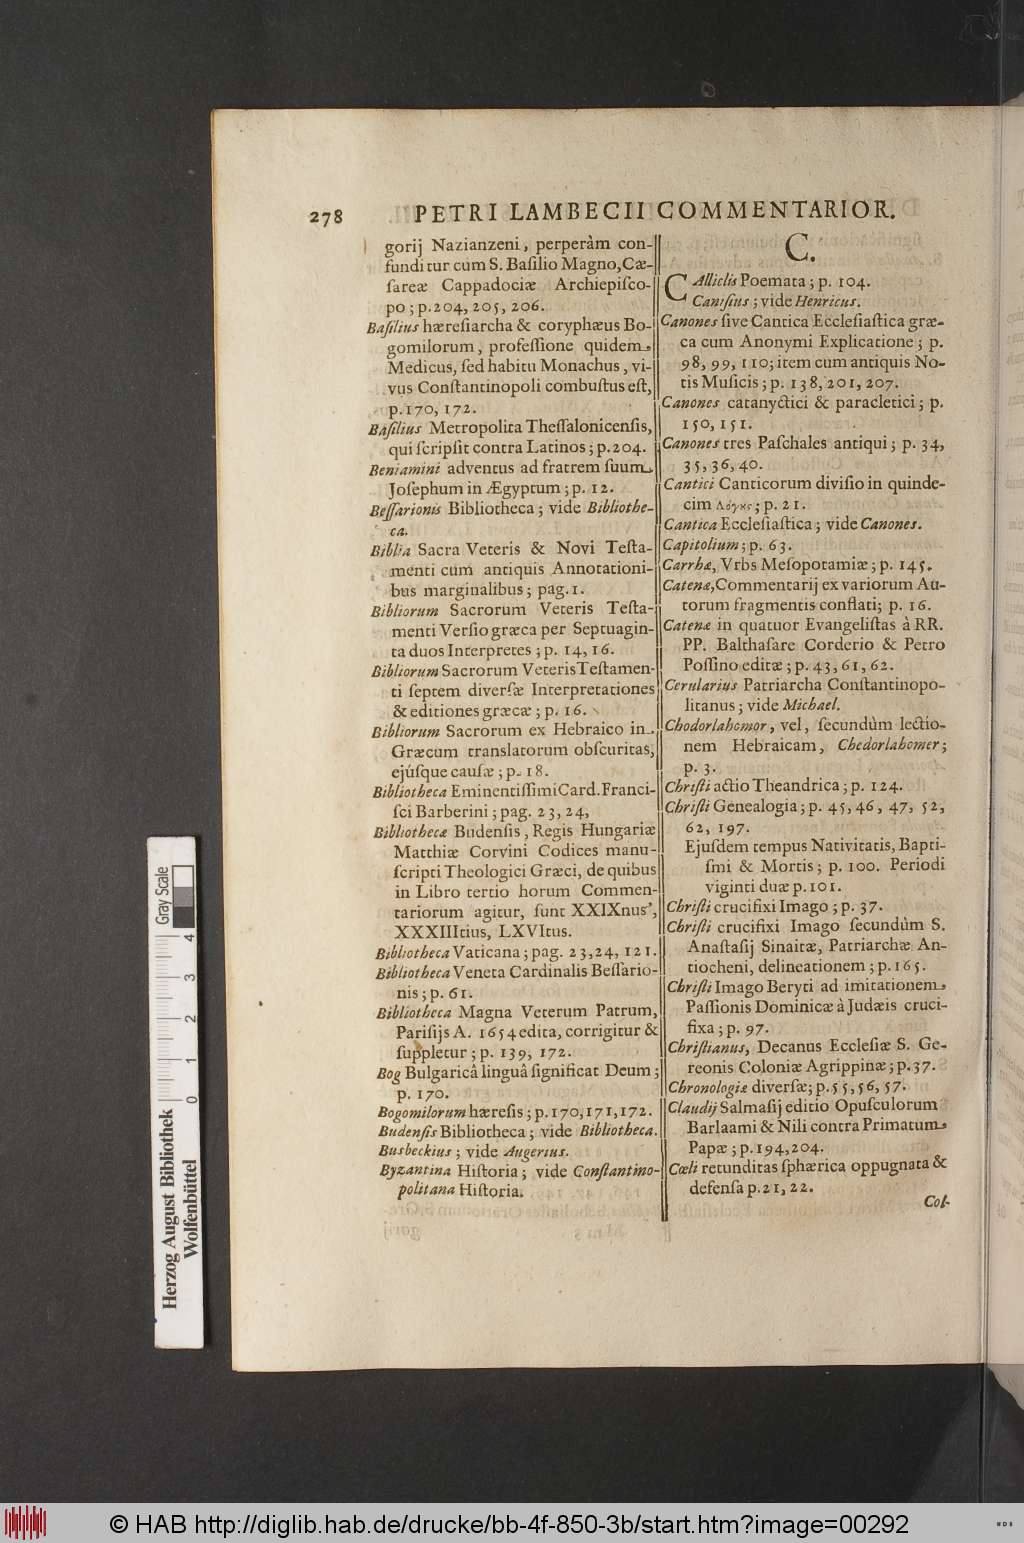 278 PETRI LAMBECII COMMENTARIOR.
gorij Nazianzeni, perperàm con-
funditur cum S. Baſilio Magno, Cæ-
ſareæ Cappadociæ Archiepiſco-
po; p. 204, 205, 206.
Baſilius hæreſiarcha & coryphæus Bo-
gomilorum, profeſſione quidem
Medicus, ſed habitu Monachus, vi-
vus Conſtantinopoli combuſtus eſt,
p. 170, 172.
Baſilius Metropolita Theſſalonicenſis,
qui ſcripſit contra Latinos; p. 204.
Beniamini adventus ad fratrem ſuum
Joſephum in Ægyptum; p. 12.
Beſſarionis Bibliotheca; vide Bibliothe-
ca.
Biblia Sacra Veteris & Novi Teſta-
menti cum antiquis Annotationi-
bus marginalibus; pag. 1.
Bibliorum Sacrorum Veteris Teſta-
menti Verſio græca per Septuagin-
ta duos Interpretes; p. 14, 16.
Bibliorum Sacrorum Veteris Teſtamen-
ti ſeptem diverſæ Interpretationes
& editiones græcæ; p. 16.
Bibliorum Sacrorum ex Hebraico in
Græcum translatorum obſcuritas,
ejúſque cauſæ; p. 18.
Bibliotheca Eminentiſſimi Card. Franci-
ſci Barberini; pag. 23, 24,
Bibliothecæ Budenſis, Regis Hungariæ
Matthiæ Corvini Codices manu-
ſcripti Theologici Græci, de quibus
in Libro tertio horum Commen-
tariorum agitur, ſunt XXIXnus,
XXXIIItius, LXVItus.
Bibliotheca Vaticana; pag. 23, 24, 121.
Bibliotheca Veneta Cardinalis Beſſario-
nis; p. 61.
Bibliotheca Magna Veterum Patrum,
Pariſijs A. 1654 edita, corrigitur &
ſuppletur; p. 139, 172.
Bog Bulgaricâ linguâ ſignificat Deum;
p. 170.
Bogomilorum hæreſis; p. 170, 171, 172.
Budenſis Bibliotheca; vide Bibliotheca.
Busbeckius; vide Augerius.
Byzantina Hiſtoria; vide Conſtantino-
politana Hiſtoria.
C.
CAlliclis Poemata; p. 104.
Caniſius; vide Henricus.
Canones ſive Cantica Eccleſiaſtica græ-
ca cum Anonymi Explicatione; p.
98, 99, 110; item cum antiquis No-
tis Muſicis; p. 138, 201, 207.
Canones catanyctici & paracletici; p.
150, 151.
Canones tres Paſchales antiqui; p. 34,
35, 36, 40.
Cantici Canticorum diviſio in quinde-
cim Λόγȣς; p. 21.
Cantica Eccleſiaſtica; vide Canones.
Capitolium; p. 63.
Carrhæ, Vrbs Meſopotamiæ; p. 145.
Catenæ, Commentarij ex variorum Au-
torum fragmentis conflati; p. 16.
Catenæ in quatuor Evangeliſtas à RR.
PP. Balthaſare Corderio & Petro
Poſſino editæ; p. 43, 61, 62.
Cerularius Patriarcha Conſtantinopo-
litanus; vide Michael.
Chodorlahomor, vel, ſecundùm lectio-
nem Hebraicam, Chedorlahomer;
p. 3.
Chriſti actio Theandrica; p. 124.
Chriſti Genealogia; p. 45, 46, 47, 52,
62, 197.
Ejuſdem tempus Nativitatis, Bapti-
ſmi & Mortis; p. 100. Periodi
viginti duæ p. 101.
Chriſti crucifixi Imago; p. 37.
Chriſti crucifixi Imago ſecundùm S.
Anaſtaſij Sinaitæ, Patriarchæ An-
tiocheni, delineationem; p. 165.
Chriſti Imago Beryti ad imitationem
Paſſionis Dominicæ à Judæis cruci-
fixa; p. 97.
Chriſtianus, Decanus Eccleſiæ S. Ge-
reonis Coloniæ Agrippinæ; p. 37.
Chronologiæ diverſæ; p. 55, 56, 57.
Claudij Salmaſij editio Opuſculorum
Barlaami & Nili contra Primatum
Papæ; p. 194, 204.
Cœli rotunditas ſphærica oppugnata &
defenſa p. 21, 22.
Col-
Gray Scale
0 1 2 3 4
Herzog August Bibliothek
Wolfenbüttel
© HAB http://diglib.hab.de/drucke/bb-4f-850-3b/start.htm?image=00292